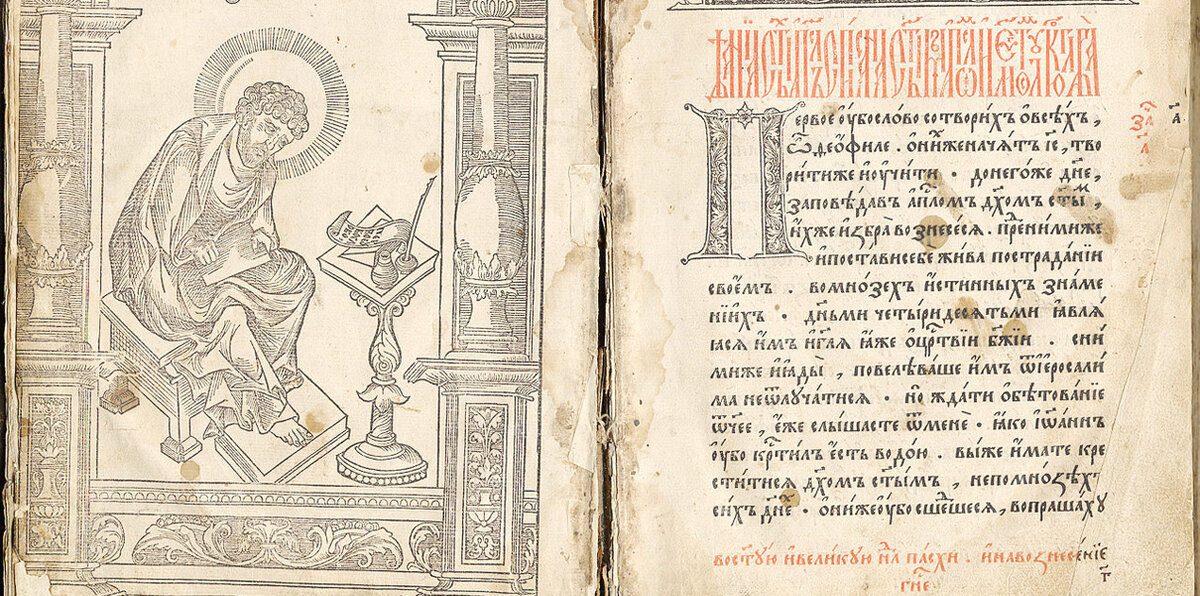 Первое оу҆бо слово сотворихъ ѻ҆ всѣхъ,
ѽ ѳео́филе . ѡ҆ ниⷯже начѧ́тъ і҃с, тво
ри́ти же и҆ оу҆чи́ти · до него́же дн҃е,
заповѣ́давъ а҆пⷭ҇ломъ дх҃омъ ст҃ыⷨ,
и҆́хже и҆збра̀ вознесе́сѧ . преⷣ ни́ми же
и҆ поста́ви себе жи́ва по страда́нїи
свое́мъ . во мно́зехъ и҆́стинныхъ зна́ме
нїихъ · дньми четы́ридесѧтьми ꙗ҆влѧ́
ꙗсѧ и҆̀мъ и҆ гл҃ѧ ꙗ҆́же ѻ҆ цр҃твїи бж҃їи . с ни́
ми же и҆ ꙗ҆ды̀ , повелѣва́ше и҆̀мъ ѿ і҆еросали́
ма не ѿлуча́тисѧ · но жда́ти ѻ҆бѣтова́нїе
ѻ҆́ч҃ее , е҆́же слы́шасте ѿ менѐ · ꙗ҆́ко і҆ѡа́ннъ
оу҆́бо крⷭ҇ти́лъ є҆́сть водо́ю . вы́ же и҆́мате кре
сти́тисѧ дх҃омъ ст҃ымъ , не по мно́зѣхъ
си́хъ дн҃еⷯ · ѻ҆ни́ же оу҆́бо сше́дшесѧ, вопраша́хꙋ
во ст҃ꙋ́ю и҆ вели́кꙋю нⷣлѧ па́схи . и҆ на вознесе́нїе
гн҃е